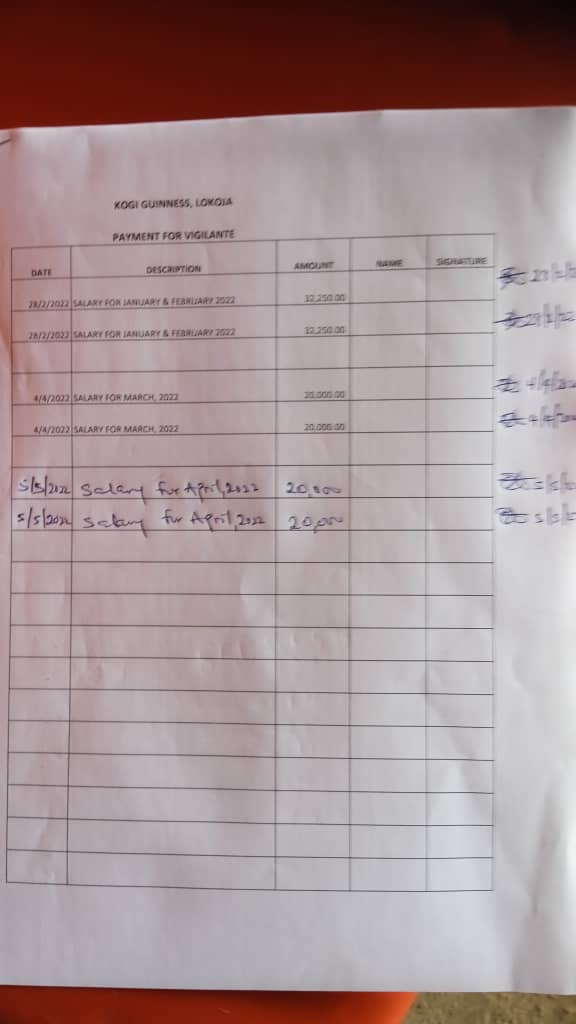 KOGI GUINNESS, LOKOJA
PAYMENT FOR VIGILANTE
DATE DESCRIPTION AMOUNT NAME SIGNATURE
28/2/2022 SALARY FOR JANUARY & FEBRUARY 2022 32,250.00
28/2/2022 SALARY FOR JANUARY & FEBRUARY 2022 32,250.00
4/4/2022 SALARY FOR MARCH, 2022 20,000.00
4/4/2022 SALARY FOR MARCH, 2022 20,000.00
5/5/2022 Salary for April, 2022 20,000
5/5/2022 Salary for April, 2022 20,000